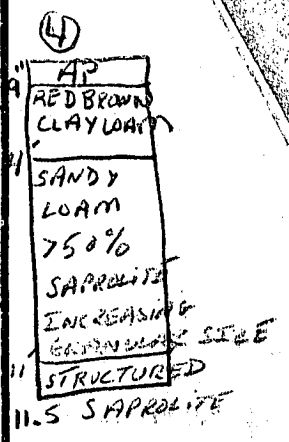 4
AP
9"
RED BROWN
CLAY LOAM
SANDY
LOAM
>50%
SAPROLITE
INCREASING
GRANULAR SIZE
11'
STRUCTURED
11.5 SAPROLITE